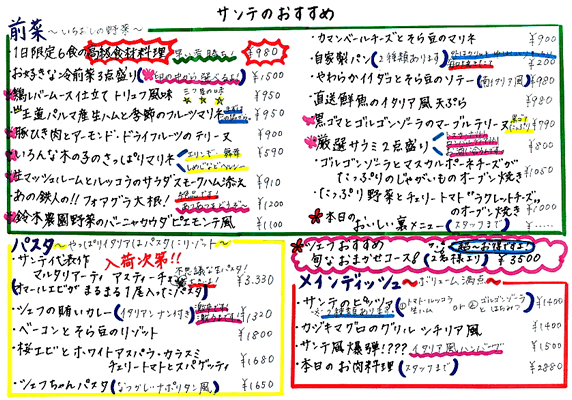 サンテのおすすめ
前菜 ～いちおしの野菜～
1日限定6食の高級食材料理 早い者勝ち! ¥980
お好きな冷前菜3点盛り ¥1500
鶏レバームース仕立て トリュフ風味 ¥950
王道パルマ産生ハムと季節のフルーツマリネ ¥950
豚ひき肉とアーモンド・ドライフルーツのテリーヌ ¥900
いろんな木の子のさっぱりマリネ ¥590
生マッシュルームとルッコラのサラダスモークハム添え ¥910
あの鉄人の!! フォアグラ大根! ¥1200
鈴木農園野菜のバーニャカウダピエモンテ風 ¥1100
・カマンベールチーズとそら豆のマリネ ¥900
・自家製パン(2種類あります) ¥200
・やわらかイイダコとそら豆のソテー(南イタリア風) ¥980
・直送鮮魚のイタリア風天ぷら ¥980
黒ゴマとゴルゴンゾーラのマーブルテリーヌ ¥790
厳選サラミ2点盛り ¥800
・ゴルゴンゾーラとマスカルポーネチーズが
たっぷりのじゃがいものオーブン焼き ¥1050
・たっぷり野菜とチェリートマト"ラクレットチーズ"
のオーブン焼き ¥1000
・本日の
おいしい裏メニュー(スタッフまで) ¥
パスタ ～やっぱりイタリアはパスタ・リゾット～
・サンテ代表作 入荷次第!!
マルタリアーティ アスティーチェ 不思議な生パスタ!
(オマールエビがまるまる1尾入ったパスタ) ¥3.330
・シェフの賄いカレー(イタリアンナン付き) ¥1320
・ベーコンとそら豆のリゾット ¥1800
・桜エビとホワイトアスパラ・カラスミ
チェリートマトとスパゲッティ ¥1680
・シェフちゃんパスタ(なつかしナポリタン風) ¥1650
シェフおすすめ
旬なおまかせコース(2名様より) ¥3500
メインディッシュ～ボリューム満点～
・サンテのピッツァ ①トマト・ルッコラ 生ハム or ②ゴルゴンゾーラ とはちみつ ¥1400
・カジキマグロのグリルシチリア風 ¥1400
・サンテ風爆弾!??? イタリア風ハンバーグ ¥1500
・本日のお肉料理(スタッフまで) ¥2880